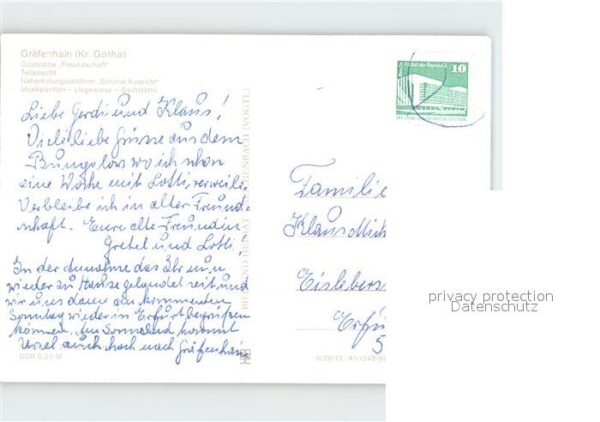 Gräfenhain (Kr. Gotha)
Gaststätte „Freundschaft"
Teilansicht
Naherholungszentrum „Schöne Aussicht"
Musikpavillon – Liegewiese – Gaststätte
Liebe Gerdi und Klaus!
Viele liebe Grüsse aus dem
Bungalow wo ich schon
eine Woche mit Lotti verweile.
Verbleibe ich in alter Freund-
schaft. Eure alte Freundin
Gretel und Lotti!
In der Annahme das Ihr nun
wieder zu Hause gelandet seit und
wir uns dann am kommenten
Sonntag wieder in Erfurt begrüßen
können. Am Sonnabend kommt
Ursel auch noch nach Gräfenhain
DDR 0,20 M
BILD UND HEIMAT REICHENBACH (VOGTL)
10
Familie
Klaus
Eisleber
Erfu
5
privacy protection
Datenschutz